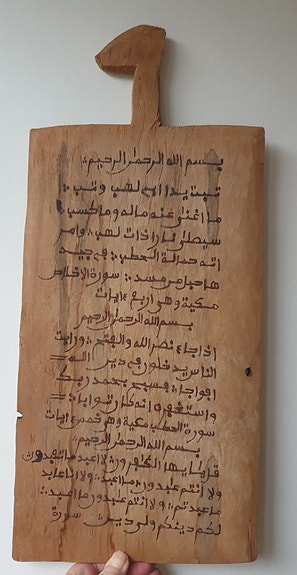 بسم الله الرحمن الرحيم
تبت يدا ابي لهب وتب
ما اغنى عنه ماله وما كسب
سيصلى نارا ذات لهب وامر
اته حمالة الحطب في جيد
ها حبل من مسد سورة الاخلاص
مكية وهي اربع ءايات
بسم الله الرحمن الرحيم
اذا جاء نصر الله والفتح ورايت
الناس يدخلون في دين الله
افواجا فسبح بحمد ربك
واستغفره انه كان توابا
سورة الحطب مكية وهي خمس ءايات
بسم الله الرحمن الرحيم
قل يايها الكفرون لا اعبد ما تعبدون
ولا انتم عبدون ما اعبد ولا انا عابد
ما عبدتم ولا انتم عبدون ما اعبد
لكم دينكم ولي دين سورة